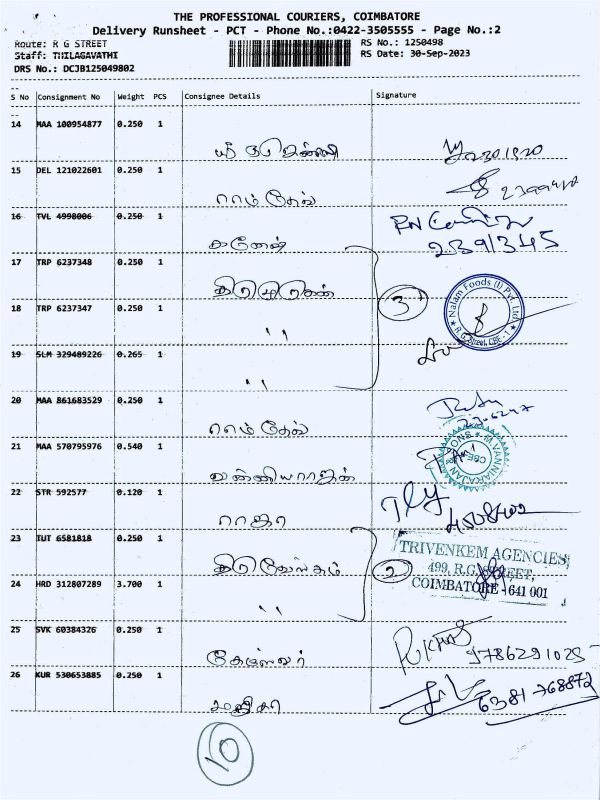 THE PROFESSIONAL COURIERS, COIMBATORE
Delivery Runsheet - PCT - Phone No.:0422-3505555 - Page No.:2
Route: R G STREET
RS No.: 1250498
Staff: THILAGAVATHI
RS Date: 30-Sep-2023
DRS No.: DCJB125049802
S No Consignment No Weight PCS Consignee Details Signature
14 MAA 100954877 0.250 1
15 DEL 121022601 0.250 1
ராம்தேவ்
16 TVL 4998006 0.250 1
கணேஷ்
17 TRP 6237348 0.250 1
திருமுருகன்
18 TRP 6237347 0.250 1
" 3
Nalam Foods (I) Pvt. Ltd.
R.G. Street, CBE - 1
19 SLM 329489226 0.265 1
"
20 MAA 861683529 0.250 1
ராம்தேவ்
21 MAA 570795976 0.540 1
வன்னியராஜன்
M. VANNIARAJAN SONS
CBE
22 STR 592577 0.120 1
ராஜா
23 TUT 6581818 0.250 1
திருவேங்கடம் 2
TRIVENKEM AGENCIES
499, R.G. STREET,
COIMBATORE - 641 001
24 HRD 312807289 3.700 1
"
25 SVK 60384326 0.250 1
9786291025
26 KUR 530653885 0.250 1
6381768872
10